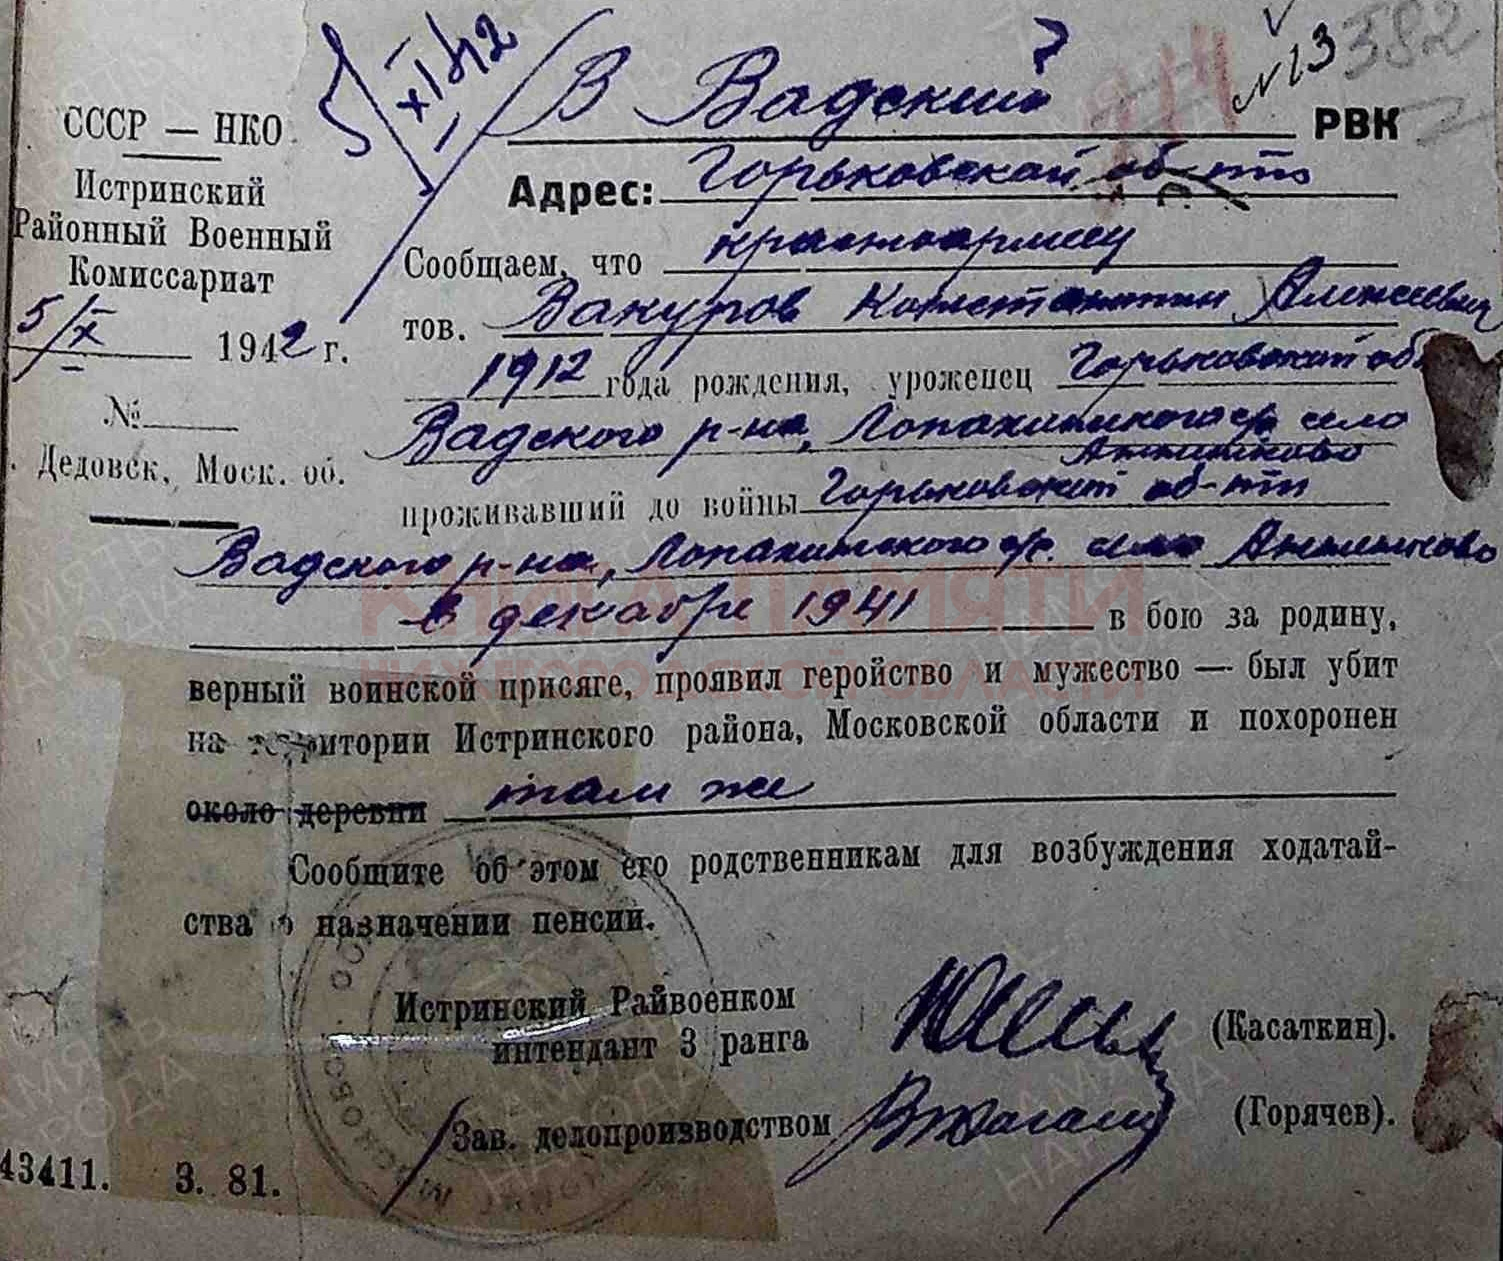 XI 42
№13
382
СССР — НКО
Истринский
Районный Военный
Комиссариат
5/X 1942 г.
№
Дедовск, Моск. об.
В Вадский РВК
Адрес: Горьковской об-ти
Сообщаем, что красноармеец
тов. Вакуров Константин Алексеевич
1912 года рождения, уроженец Горьковской об
Вадского р-на, Лопатинского с/с. село
Анненково
проживавший до войны Горьковской об-ти
Вадского р-на, Лопатинского с/с. село Анненково
в декабре 1941 в бою за родину,
верный воинской присяге, проявил геройство и мужество — был убит
на территории Истринского района, Московской области и похоронен
около деревни там же
Сообщите об этом его родственникам для возбуждения ходатай-
ства о назначении пенсии.
Истринский Райвоенком
интендант 3 ранга (Касаткин).
Зав. делопроизводством (Горячев).
43411. З. 81.
КНИГА ПАМЯТИ
НИЖЕГОРОДСКОЙ ОБЛАСТИ
ПАМЯТЬ НАРОДА